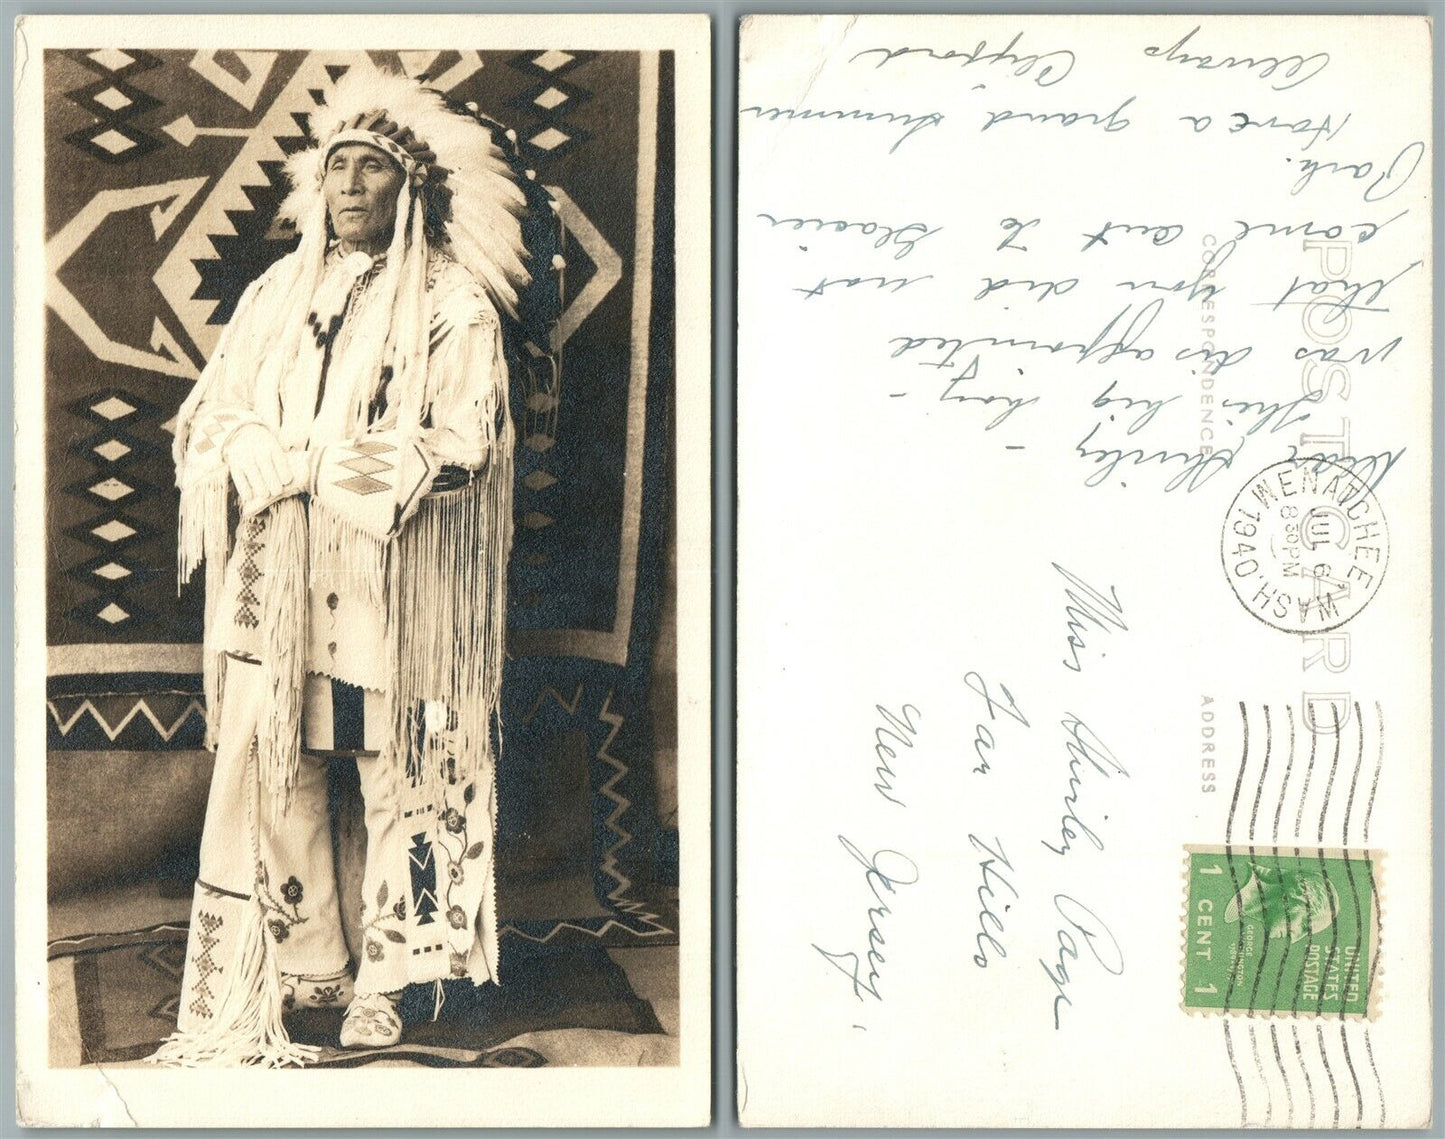 POST CARD
CORRESPONDENCE
ADDRESS
Dear Shirley –
This big boy –
was disappointed
that you did not
come out to Glacier
Park.
Have a grand summer
Always
Clifford
WENATCHEE
WASH.
JUL 6
8 30 PM
1940
Miss Shirley Page
Far Hills
New Jersey.
UNITED
STATES
POSTAGE
GEORGE
WASHINGTON
1 CENT 1